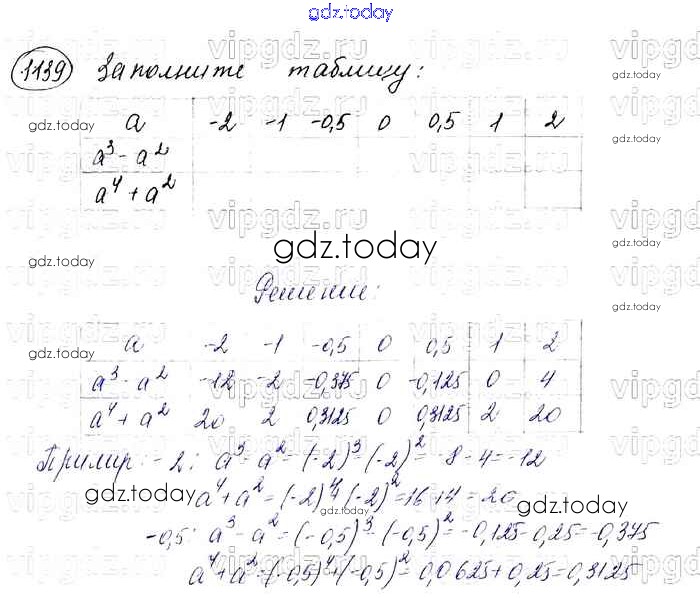 gdz.today
1139 Заполните таблицу:
a -2 -1 -0,5 0 0,5 1 2
a³ - a²
a⁴ + a²
gdz.today
Решение:
a -2 -1 -0,5 0 0,5 1 2
a³ - a² -12 -2 -0,375 0 -0,125 0 4
a⁴ + a² 20 2 0,3125 0 0,3125 2 20
Пример: -2: a³ - a² = (-2)³ - (-2)² = -8 - 4 = -12
a⁴ + a² = (-2)⁴ + (-2)² = 16 + 4 = 20
-0,5: a³ - a² = (-0,5)³ - (-0,5)² = -0,125 - 0,25 = -0,375
a⁴ + a² = (-0,5)⁴ + (-0,5)² = 0,0625 + 0,25 = 0,3125